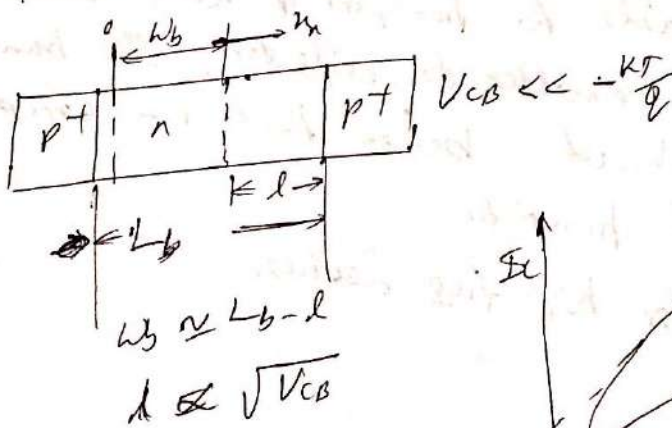 0 Wb xn
p+ n p+ VCB << -KT/q
l
Lb
Wb ≃ Lb - l
l ∝ √VCB
IC